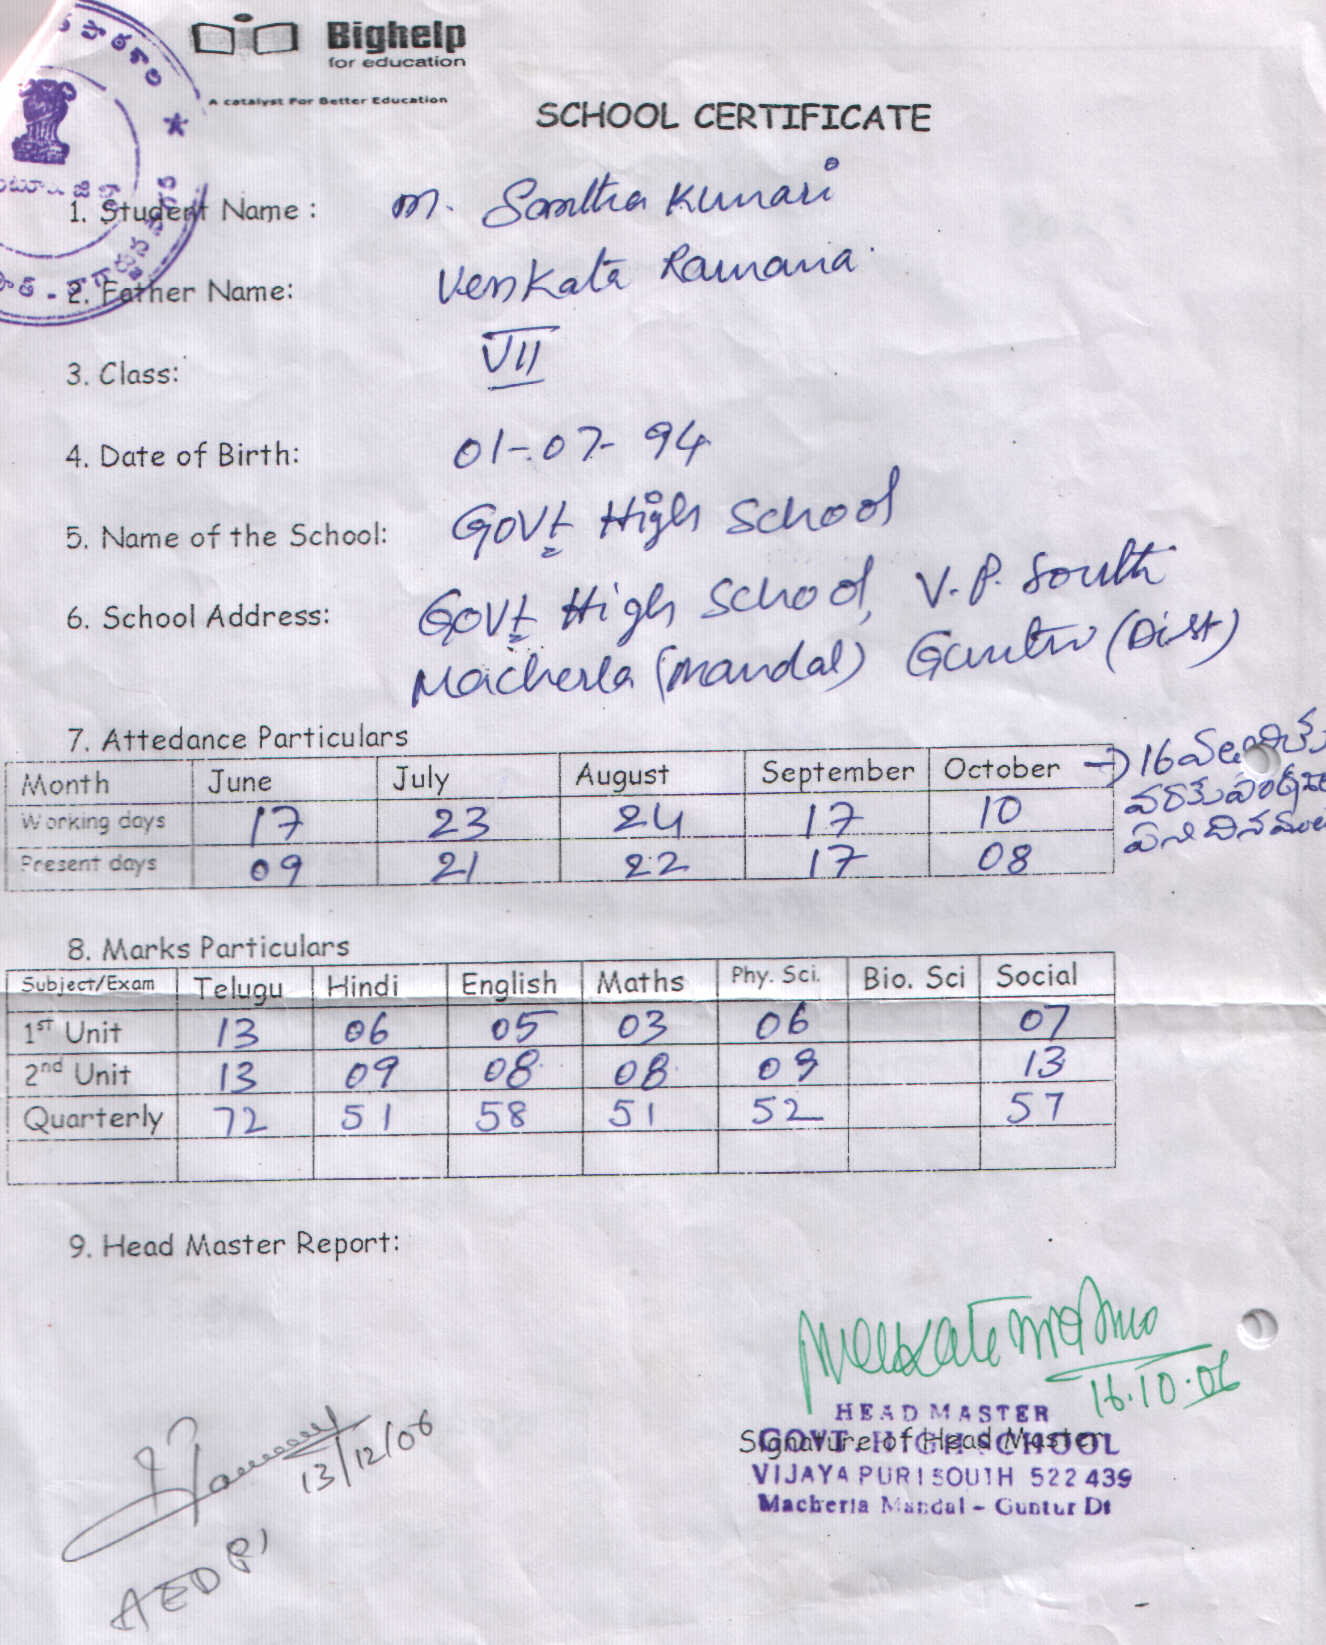 Bighelp
for education
A catalyst For Better Education
SCHOOL CERTIFICATE
1. Student Name : M. Santha Kumari
2. Father Name: Venkata Ramana
3. Class: VII
4. Date of Birth: 01-07-94
5. Name of the School: Govt High School
6. School Address: Govt High School, V.P. South
Macherla (Mandal) Guntur (Dist)
7. Attedance Particulars
Month June July August September October → 16
Working days 17 23 24 17 10
Present days 09 21 22 17 08
8. Marks Particulars
Subject/Exam Telugu Hindi English Maths Phy. Sci. Bio. Sci Social
1ST Unit 13 06 05 03 06 07
2nd Unit 13 09 08 08 09 13
Quarterly 72 51 58 51 52 57
9. Head Master Report:
16.10.06
HEAD MASTER
Signature of Head Master
GOVT HIGH SCHOOL
VIJAYAPURI SOUTH 522 439
Macherla Mandal - Guntur Dt
13/12/06